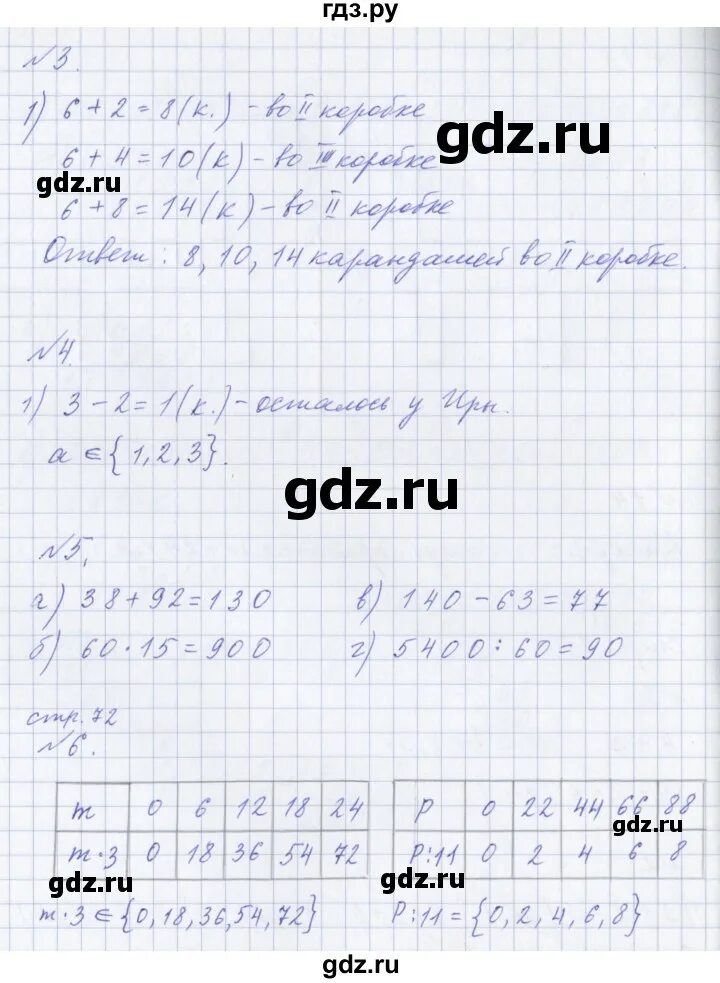 гдз.ру
№3.
1) 6 + 2 = 8 (к.) – во II коробке
gdz.ru
6 + 4 = 10 (к) – во III коробке
gdz.ru
6 + 8 = 14 (к) – во II коробке
Ответ: 8, 10, 14 карандашей во II коробке.
№4.
1) 3 – 2 = 1 (к.) – осталось у Иры.
a ∈ {1, 2, 3}.
gdz.ru
№5.
а) 38 + 92 = 130 в) 140 – 63 = 77
б) 60 · 15 = 900 г) 5400 : 60 = 90
стр. 72
№6.
m 0 6 12 18 24
m·3 0 18 36 54 72
p 0 22 44 66 88
gdz.ru
p:11 0 2 4 6 8
gdz.ru gdz.ru
m·3 ∈ {0, 18, 36, 54, 72} p:11 = {0, 2, 4, 6, 8}
gdz.ru